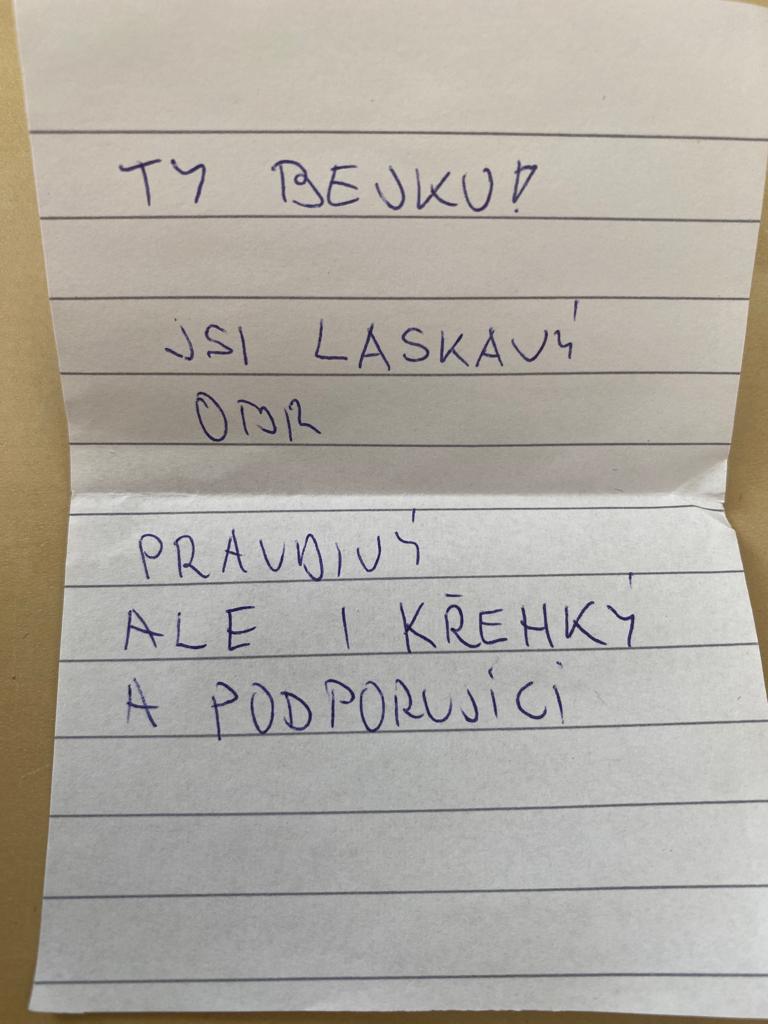 TY BEJKU!
JSI LASKAVÝ
OBR
PRAVDIVÝ
ALE I KŘEHKÝ
A PODPORUJÍCÍ